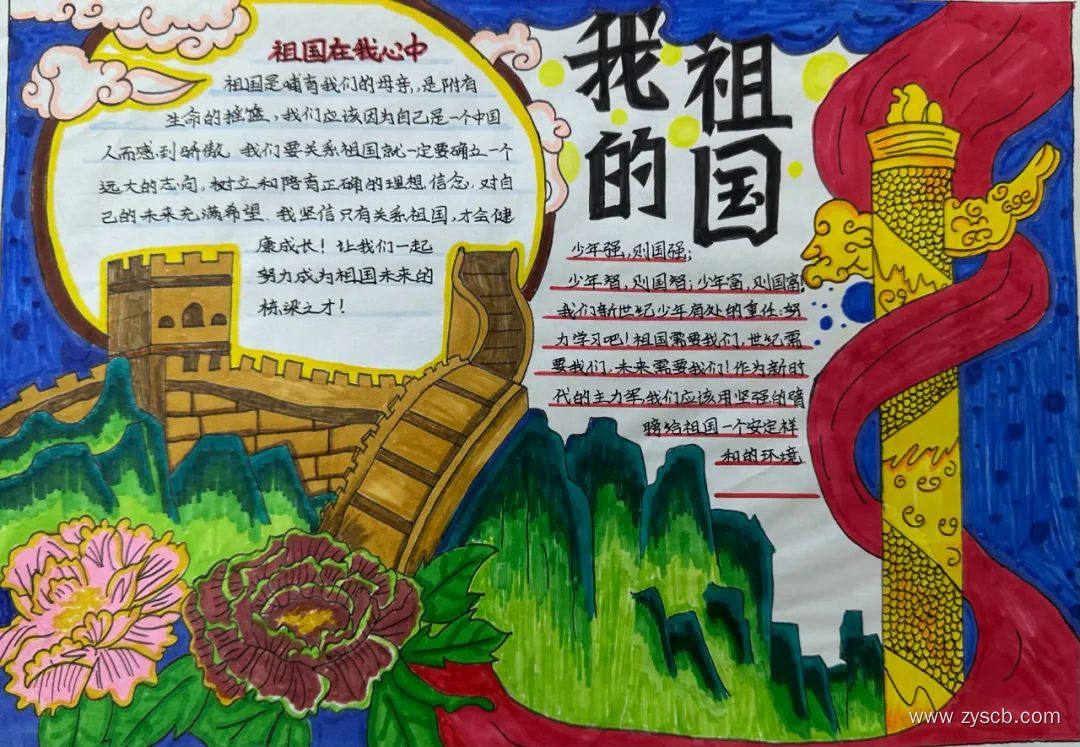 祖国在我心中
祖国是哺育我们的母亲,是附有
生命的摇篮,我们应该因为自己是一个中国
人而感到骄傲.我们要关系祖国就一定要确立一个
远大的志向,树立和陪育正确的理想.信念,对自
己的未来充满希望.我坚信只有关系祖国,才会健
康成长!让我们一起
努力成为祖国未来的
栋梁之才!
我的
祖国
少年强,则国强;
少年智,则国智;少年富,则国富;
我们新世纪少年肩处的重任:努
力学习吧!祖国需要我们,世纪需
要我们,未来需要我们!作为新时
代的主力军,我们应该用坚强的臂
膀给祖国一个安定祥
和的环境
www.zyscb.com